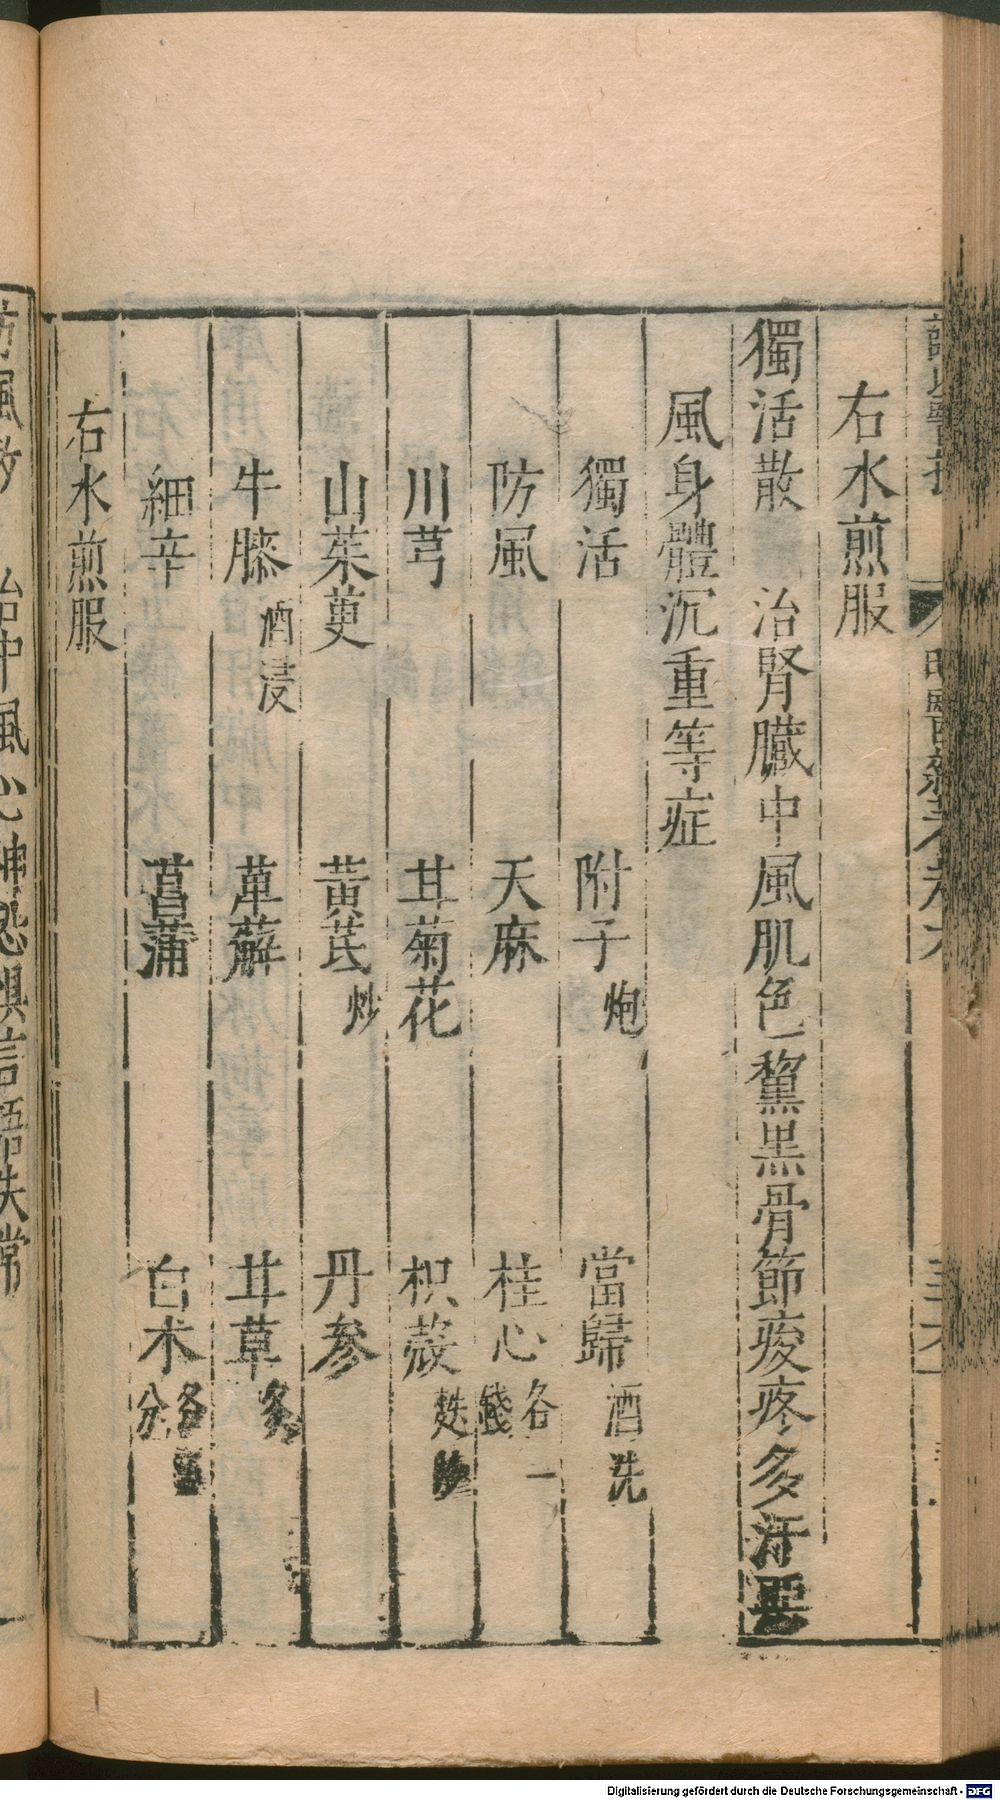 右水煎服
獨活散　治腎臟中風肌色黧黑骨節痠疼多汗惡
風身體沉重等症
獨活　附子炮　當歸酒洗
防風　天麻　桂心各一錢
川芎　甘菊花　枳殼麩炒
山茱萸　黃芪炒　丹參
牛膝酒浸　萆薢　甘草炙
細辛　菖蒲　白朮各五分
右水煎服
防風散　治中風心神恐懼言語失常
Digitalisierung gefördert durch die Deutsche Forschungsgemeinschaft - DFG